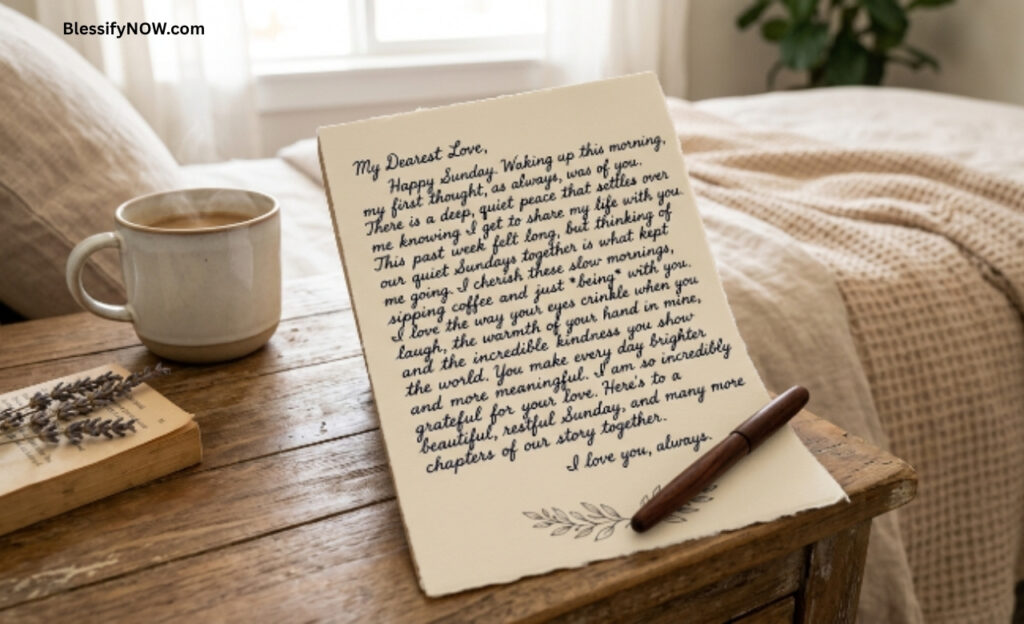 BlessifyNOW.com
My Dearest Love,
Happy Sunday. Waking up this morning,
my first thought, as always, was of you.
There is a deep, quiet peace that settles over
me knowing I get to share my life with you.
This past week felt long, but thinking of
our quiet Sundays together is what kept
me going. I cherish these slow mornings,
sipping coffee and just *being* with you.
I love the way your eyes crinkle when you
laugh, the warmth of your hand in mine,
and the incredible kindness you show
the world. You make every day brighter
and more meaningful. I am so incredibly
grateful for your love. Here's to a
beautiful, restful Sunday, and many more
chapters of our story together.
I love you, always.